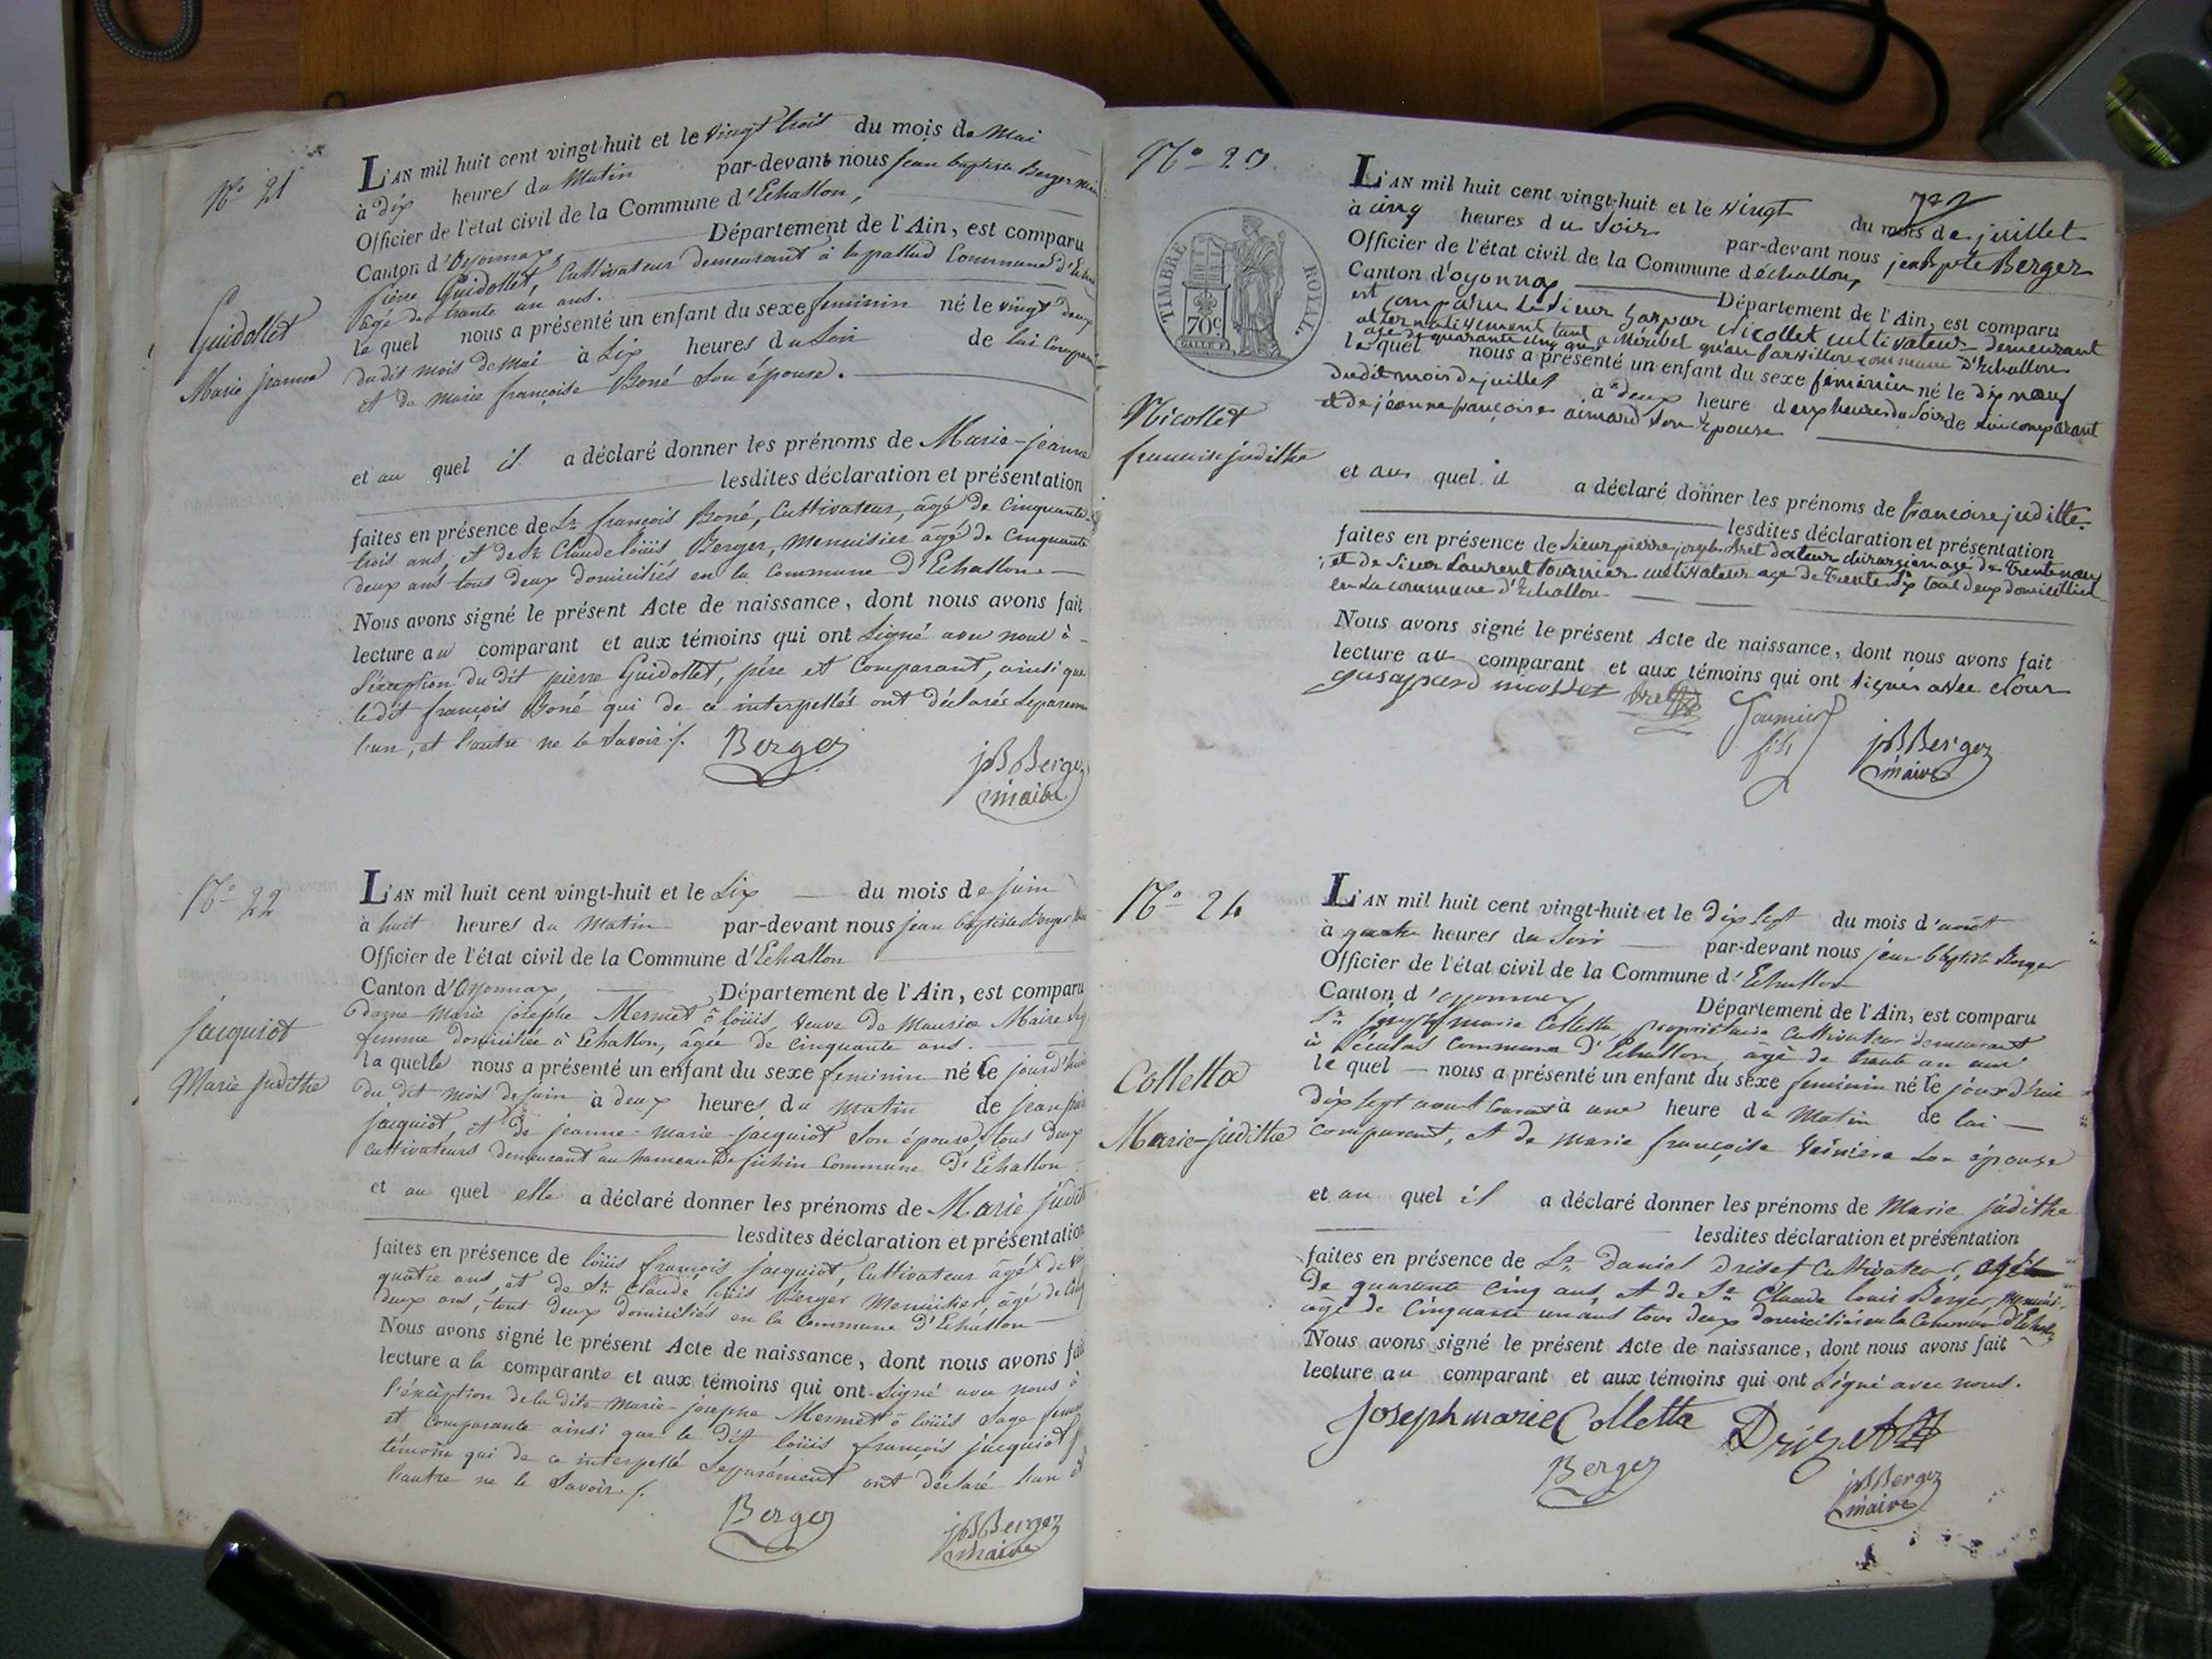 N.° 21
Guidollet
Marie jeanne
L'AN mil huit cent vingt-huit et le vingt trois du mois de Mai
à dix heures du Matin par-devant nous jean baptiste Berger
Officier de l'état civil de la Commune d'Echallon,
Canton d'Oyonnax, Département de l'Ain, est comparu
Piérre Guidollet, Cultivateur demeurant à lapallud Commune d'
âgé de trante un ans.
le quel nous a présenté un enfant du sexe feminin né le vingt deux
dudit mois de Mai à Six heures du Soir de lui
et de marie françoise Boné Son épouse.
et au quel il a déclaré donner les prénoms de Marie-jeanne
lesdites déclaration et présentation
faites en présence de Sr. françois Boné, Cultivateur, âgé de Cinquante
trois ans, et de Sr. Claude loüis Berger, Menuisier âgé de Cinquante
deux ans tous deux domiciliés en la Commune d'Echallon.
Nous avons signé le présent Acte de naissance, dont nous avons fait
lecture au comparant et aux témoins qui ont Signé avec nous à
l'éxception du dit pierre Guidollet, père et Comparant, ainsi que
ledit françois Boné qui de ce interpellés ont déclarés Separem
l'un, et l'autre ne le Savoir ./.
Berger
jB Berger
maire
N.° 22
jacquiot
Marie judithe
L'AN mil huit cent vingt-huit et le Six du mois de juin
à huit heures du Matin par-devant nous jean baptiste Berger
Officier de l'état civil de la Commune d'Echallon
Canton d'Oyonnax, Département de l'Ain, est comparu
dame Marie josephe Mermet ô loüis, Veuve de Maurice Maire
femme domiciliée à Echallon, âgée de Cinquante ans.
la quelle nous a présenté un enfant du sexe feminin né le jourd'hui
du dit mois de juin à deux heures du matin de jean
jacquiot, et de jeanne-marie-jacquiot Son épouse, tous deux
Cultivateurs demeurant au hameau de Commune d'Echallon
et au quel elle a déclaré donner les prénoms de Marie judit
lesdites déclaration et présentation
faites en présence de loüis françois jacquiot, Cultivateur âgé de
quatre ans, et de Sr. Claude loüis Berger Menuisier, âgé de
deux ans, tout deux domiciliés en la Commune d'Echallon
Nous avons signé le présent Acte de naissance, dont nous avons fait
lecture a la comparante et aux témoins qui ont Signé avec nous à
l'éxception de la dite marie josephe Mermet ô loüis Sage femme
et Comparante ainsi que le dit loüis françois jacquiot
témoin qui de ce interpellé Separément ont déclaré l'un et
l'autre ne le Savoir ./.
Berger
jB Berger
maire
N.° 23
TIMBRE ROYAL.
70c
Nicollet
francoise judithe
L'AN mil huit cent vingt-huit et le vingt du mois de juillet
à cinq heures du Soir par-devant nous jean bpte Berger
Officier de l'état civil de la Commune d'échallon,
Canton d'oyonnax Département de l'Ain, est comparu
est comparu le Sieur Gaspar Nicollet cultivateur demeurant
alternativement tant a Méribel qu'au commune d'Echallon
age de quarante cinq
le quel nous a présenté un enfant du sexe féminin né le dix neuf
dudit mois de juillet à deux heure deux heures du Soir de lui comparant
et de jéanne françoise aimard Son Epouse
et au quel il a déclaré donner les prénoms de francoise juditte
lesdites déclaration et présentation
faites en présence de Sieur pierre joseph dateur chirurgien agé de Trente neuf
et de Sieur Laurent tournier cultivateur age de Trente Six tout deux domicillié
en La commune d'Echallon
Nous avons signé le présent Acte de naissance, dont nous avons fait
lecture au comparant et aux témoins qui ont signés avec Nous
gasapard nicollet
fils
jB Berger
maire
N.° 24
Colletta
Marie-judithe
L'AN mil huit cent vingt-huit et le dix Sept du mois d'août
à quatre heures du Soir par-devant nous jean Baptiste Berger
Officier de l'état civil de la Commune d'Echallon
Canton d'oyonnax, Département de l'Ain, est comparu
Sr. joseph marie Colletta propriétaire Cultivateur demeurant
à Commune d'Echallon, âgé de trante un ans
le quel nous a présenté un enfant du sexe feminin né le jourd'hui
dix Sept aout Courant à une heure du Matin de lui
comparant, et de marie françoise Son épouse
et au quel il a déclaré donner les prénoms de Marie judithe
lesdites déclaration et présentation
faites en présence de Sr. Daniel Driset Cultivateur,
de quarante Cinq ans, et de Sr. Claude louis Berger,
âgé de Cinquante un ans tous deux domiciliés en la Commune d'
Nous avons signé le présent Acte de naissance, dont nous avons fait
lecture au comparant et aux témoins qui ont Signé avec nous.
Joseph marie Colletta
Drizet
Berger
jB Berger
maire